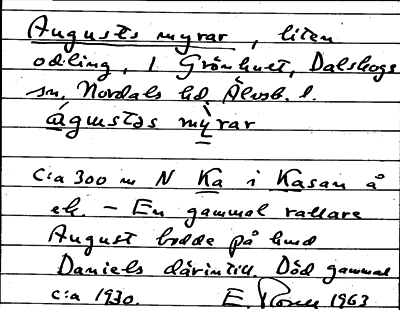 Augusts myrar, liten
odling, i Grönhult, Dalskogs
sn, Nordals hd, Älvsb. l.
águstəs mỳrar
C:a 300 m N Ka i Kasan å
ek. – En gammal rallare
August bodde på
Daniels därintill. Död gammal
c:a 1930. E. 1963